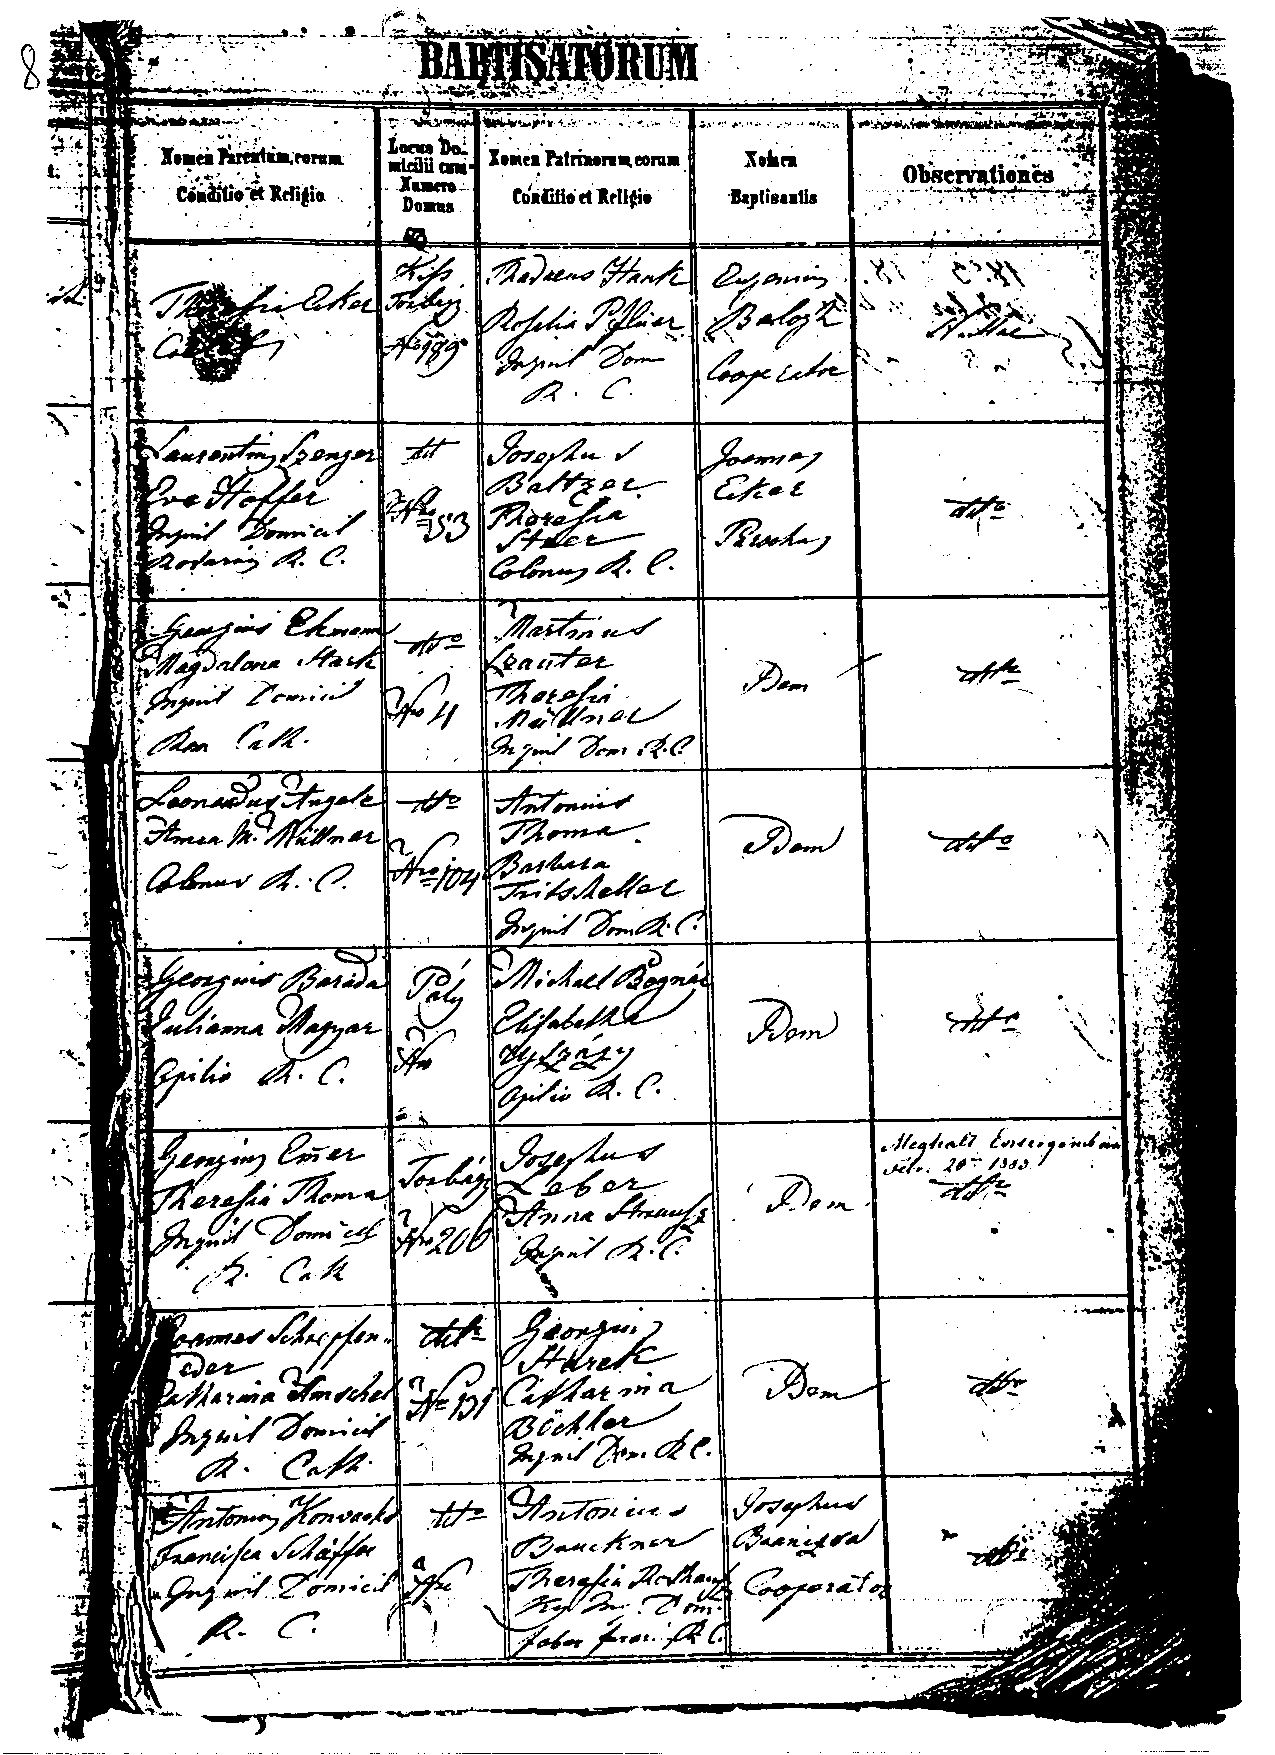 8
BAPTISATORUM
Nomen Parentum, eorum
Conditio et Religio
Locus Do-
micilii cum
Numero
Domus
Nomen Patrinorum, eorum
Conditio et Religio
Nomen
Baptisantis
Observationes
Theresia Eker
Kiss
Torbágy
Nro 189
Thadaeus Hank
Rosalia
Inquil Dom
R. C.
Eugenius
Balogh
Cooperator
Laurentius Szenger
Eva Hoffer
Inquil Domicil
R. C.
dtt
Nro 153
Josephus
Baltzer
Theresia
Colonus R. C.
Joannes
Eker
Parochus
dtto
Georgius Ekmann
Magdalena Stark
Inquil Domicil
Rom Cath.
dtto
Nro 4
Martinus
Szauter
Theresia
Müllner
Inquil Dom R. C.
Idem
dtto
Leonardus Angele
Anna M. Müllner
Colonus R. C.
dtto
Nro 104
Antonius
Thoma
Barbara
Tritscheller
Inquil Dom R. C.
Idem
dtto
Georgius Barada
Julianna Magyar
Opilio R. C.
Páty
Nro
Michael Bognár
Elisabetha
Opilio R. C.
Idem
dtto
Georgius Em̄er
Theresia Thoma
Inquil Domicil
R. Cath
Torbágy
Nro 206
Josephus
Leber
Anna Strausz
Inquil R. C.
Dom
Idem
Meghalt
Febr. 20
dtto
Joannes Schrepfen-
eder
Catharina Amschel
Inquil Domicil
R. Cath.
dtto
Nro 131
Georgius
Starek
Catharina
Böchler
Inquil Dom. R. C.
Idem
dtto
Antonius
Francisca Schäffer
Inquil Domicil
R. C.
dtto
Nro
Antonius
Bruckner
Theresia
Dom.
faber R. C.
Josephus
Cooperator
dtto